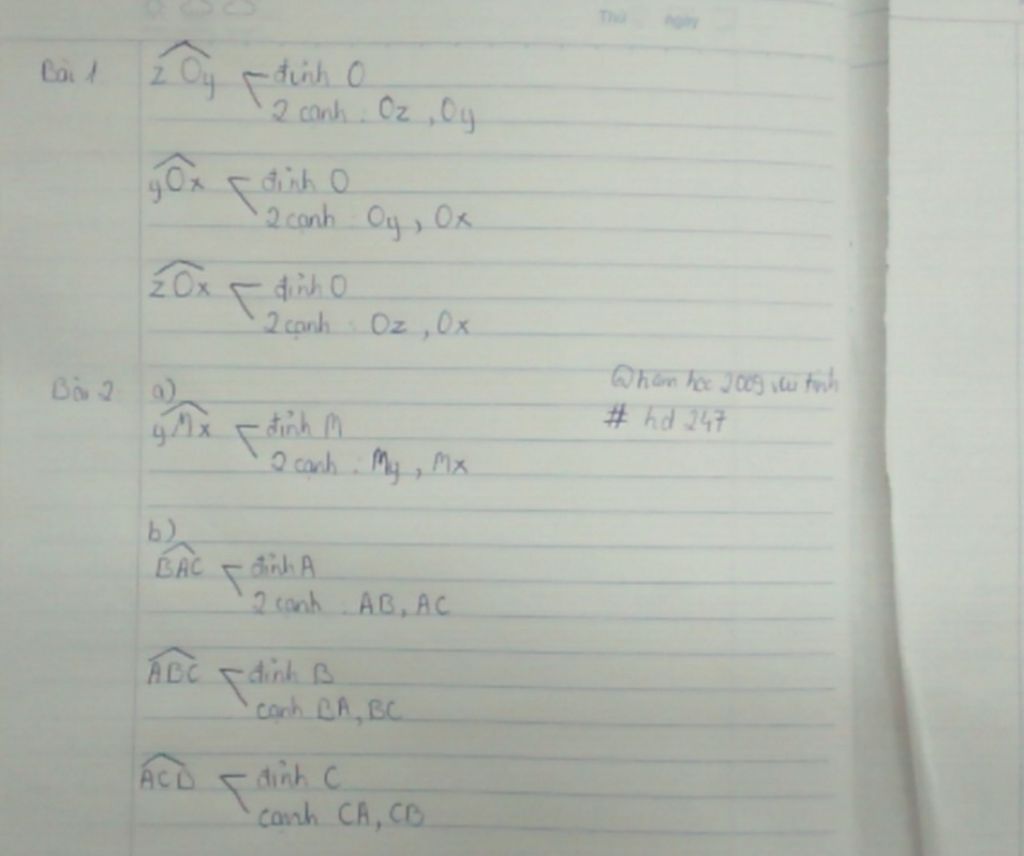 Thứ ngày
Bài 1 zOy đỉnh O
2 cạnh : Oz , Oy
yOx đỉnh O
2 cạnh : Oy , Ox
zOx đỉnh O
2 cạnh : Oz , Ox
Bài 2 a)
@ham học 2009
yMx đỉnh M # hd 247
2 cạnh : My , Mx
b)
BAC đỉnh A
2 cạnh : AB, AC
ABC đỉnh B
cạnh BA, BC
đỉnh C
cạnh CA, CB